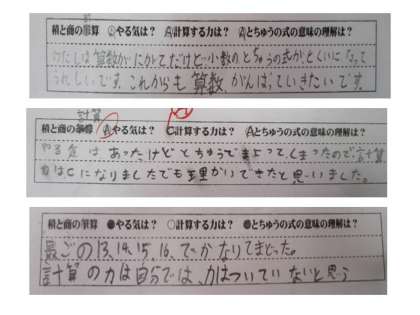 計算
積と商の筆算 Ⓐやる気は? Ⓐ計算する力は? Ⓐとちゅうの式の意味の理解は?
わたしは算数がにがてだけど小数のとちゅうの式がとくいになって
うれしいです。これからも算数、がんばっていきたいです。
計算
積と商の筆算 Ⓐやる気は? C計算する力は? Ⓐとちゅうの式の意味の理解は?
やる気はあったけどとちゅうでまよってしまったので計算
力はCになりましたでも理かいできたと思いました。
積と商の筆算 ●やる気は? ○計算する力は? ●とちゅうの式の意味の理解は?
最ごの13、14、15、16、でかなりてまどった。
計算の力は自分では、力はついていないと思う